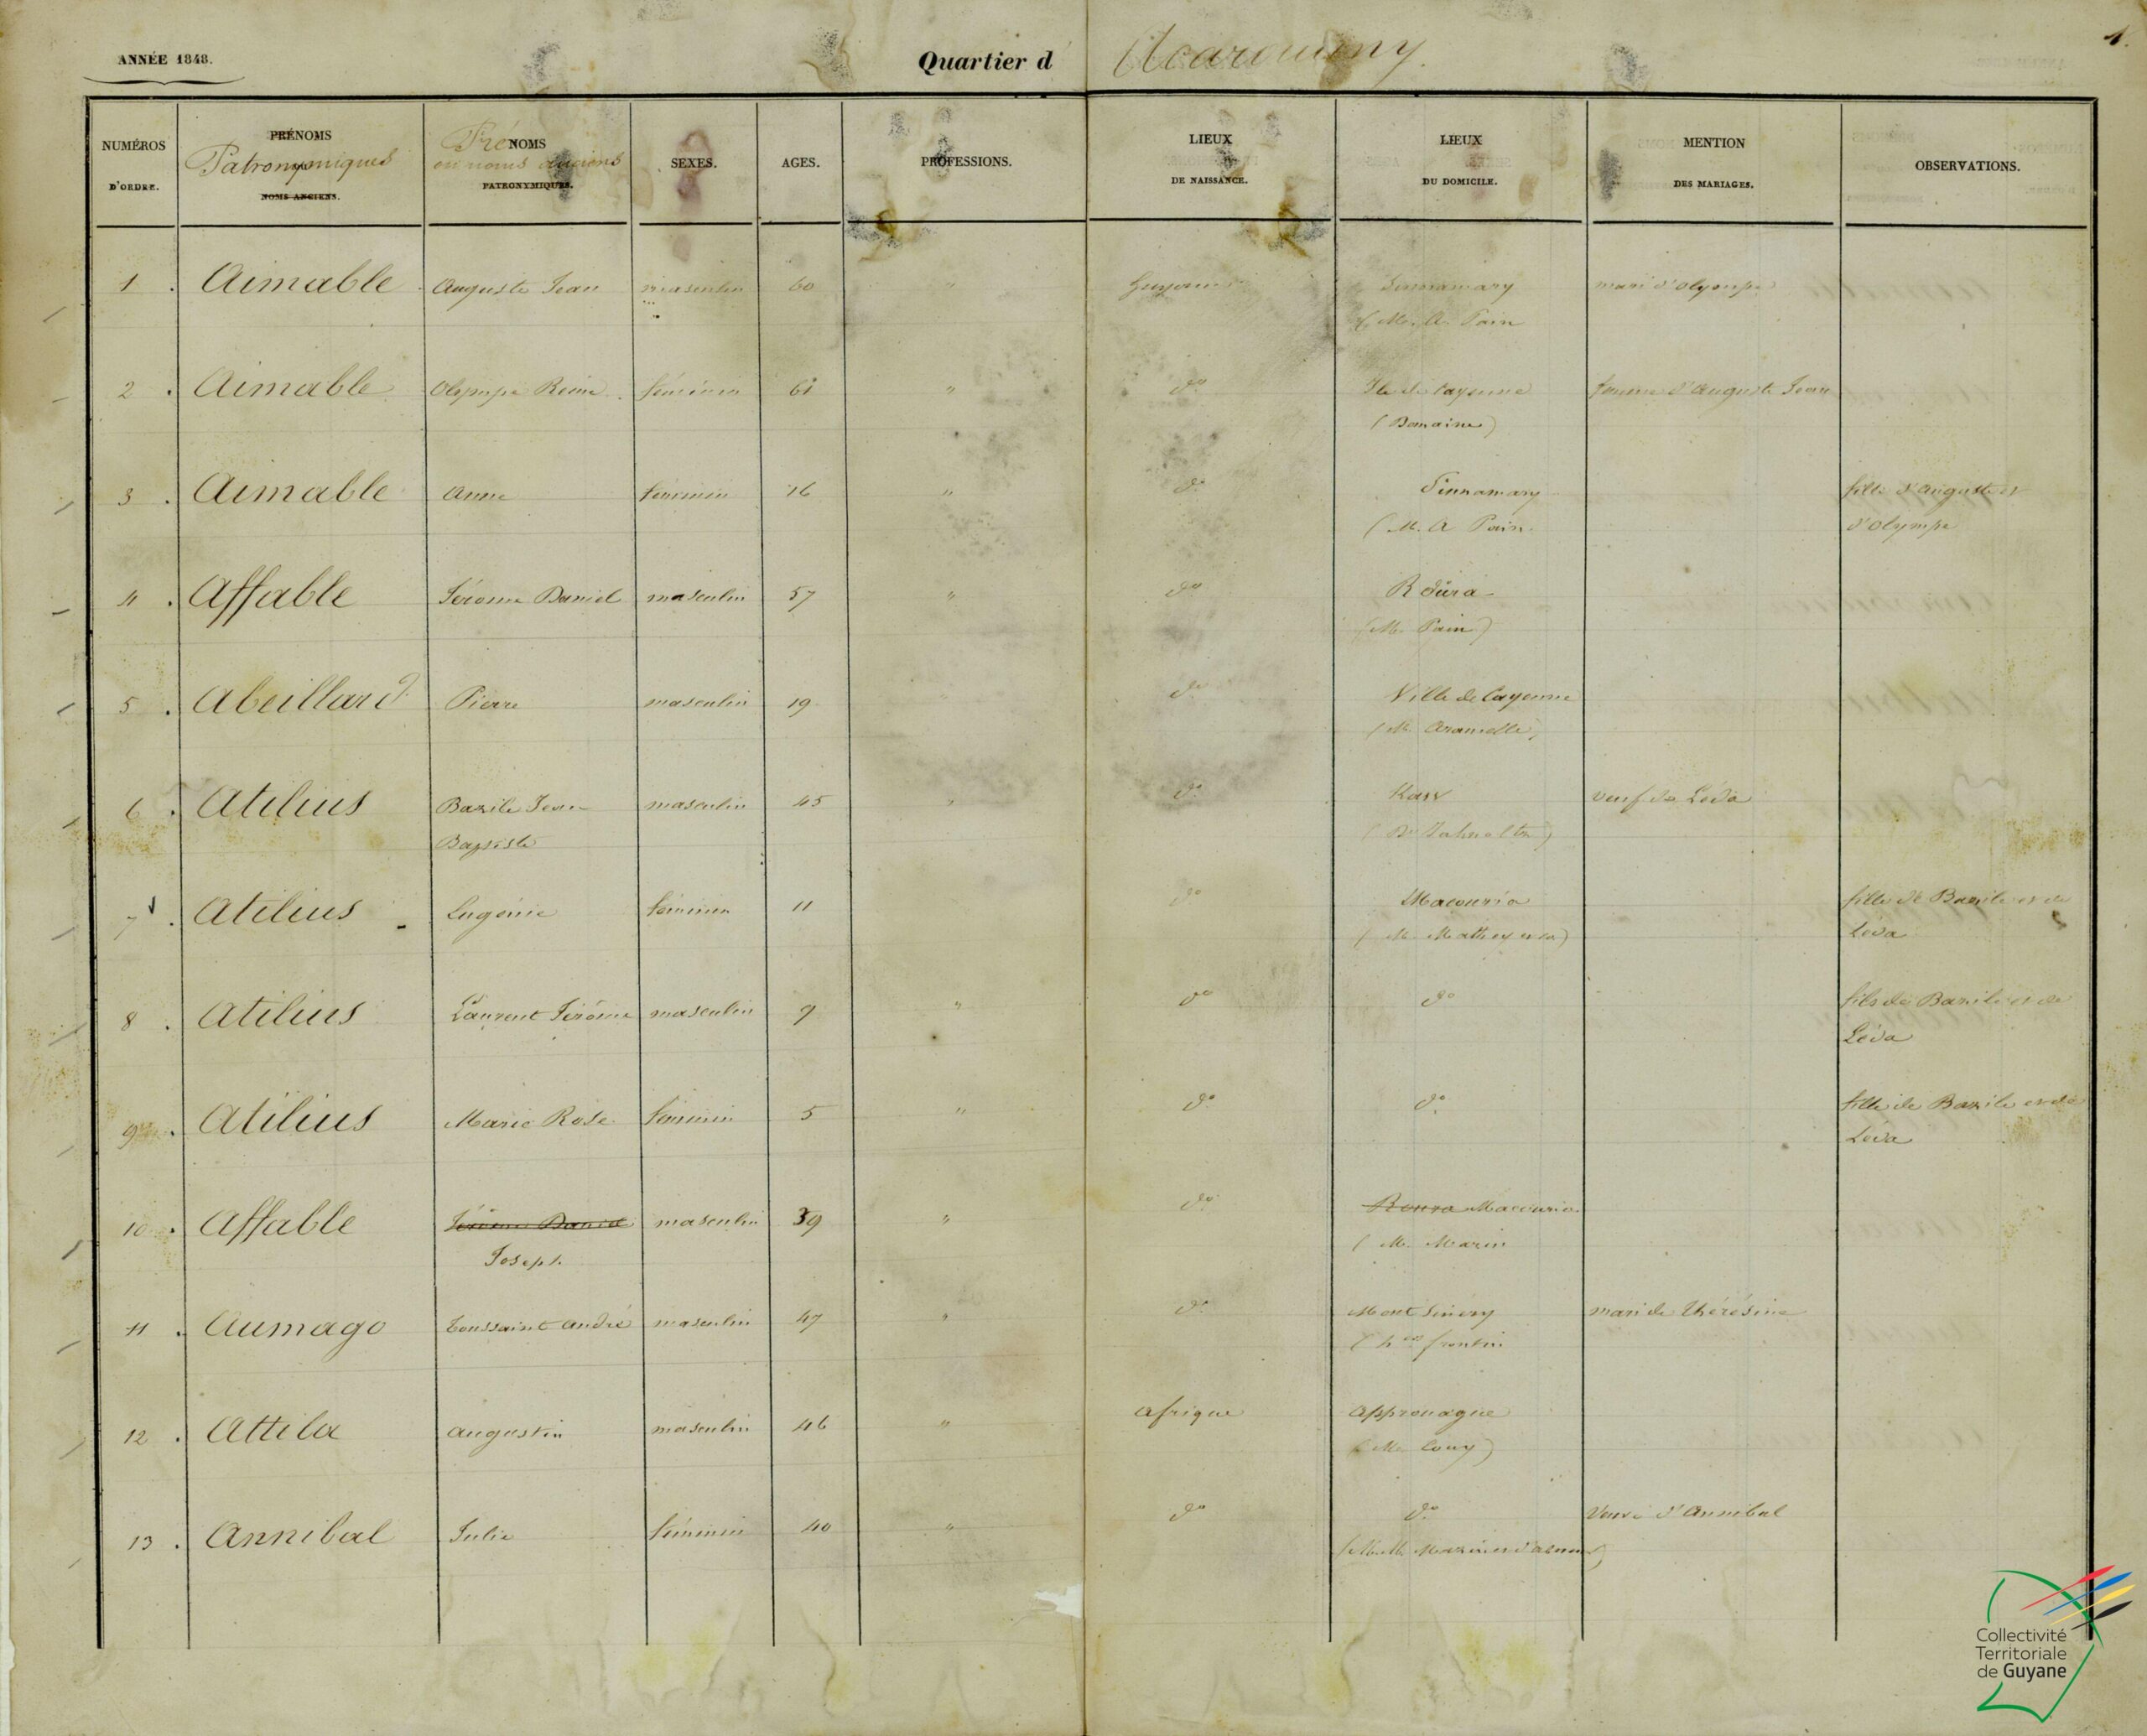 ANNÉE 1848.
Quartier d' Acarouany.
1.
NUMÉROS D'ORDRE.
PRÉNOMS Patronymiques NOMS ANCIENS.
Pré NOMS ou noms anciens PATRONYMIQUES.
SEXES.
AGES.
PROFESSIONS.
LIEUX DE NAISSANCE.
LIEUX DU DOMICILE.
MENTION DES MARIAGES.
OBSERVATIONS.
1 . Aimable Auguste Jean masculin 60 " Guyane Sinnamary mari d'Olympe
( M. A. Pain
2 . Aimable Olympe Reine féminin 61 " do Ile de Cayenne femme d'Auguste Jean
( Domaine )
3 . Aimable Anne féminin 16 " do Sinnamary fille d'Auguste et
( M. A Pain d'Olympe
4 . Affable Jérôme Daniel masculin 57 " do Roura
( M. Pain )
5 . Abeillard Pierre masculin 19 do Ville de Cayenne
( M.
6 . Atilius Bazile Jean masculin 45 " do Kaw veuf de Léda
Baptiste
7 . Atilius Eugénie féminin 11 do Macouria fille de Bazile et de
( M. Léda
8 . Atilius Laurent Jérôme masculin 9 " do do fils de Bazile et de
Léda
9 . Atilius Marie Rose féminin 5 " do do fille de Bazile et de
Léda
10 . Affable Jérôme Daniel masculin 39 " do Roura Macouria
Joseph ( M. Marin
11 . Aumago Toussaint André masculin 47 " do Mont Sinéry mari de Thérésine
frontin
12 . Attila Augustin masculin 46 " Afrique Approuague
( M. Couy )
13 . Annibal Julie féminin 40 " do do Veuve d'Annibal
Collectivité
Territoriale
de Guyane